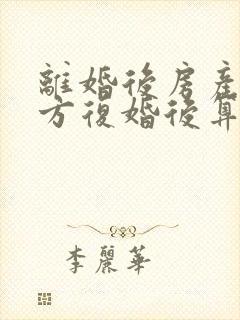 離婚後房產
方復婚後算
李麗華